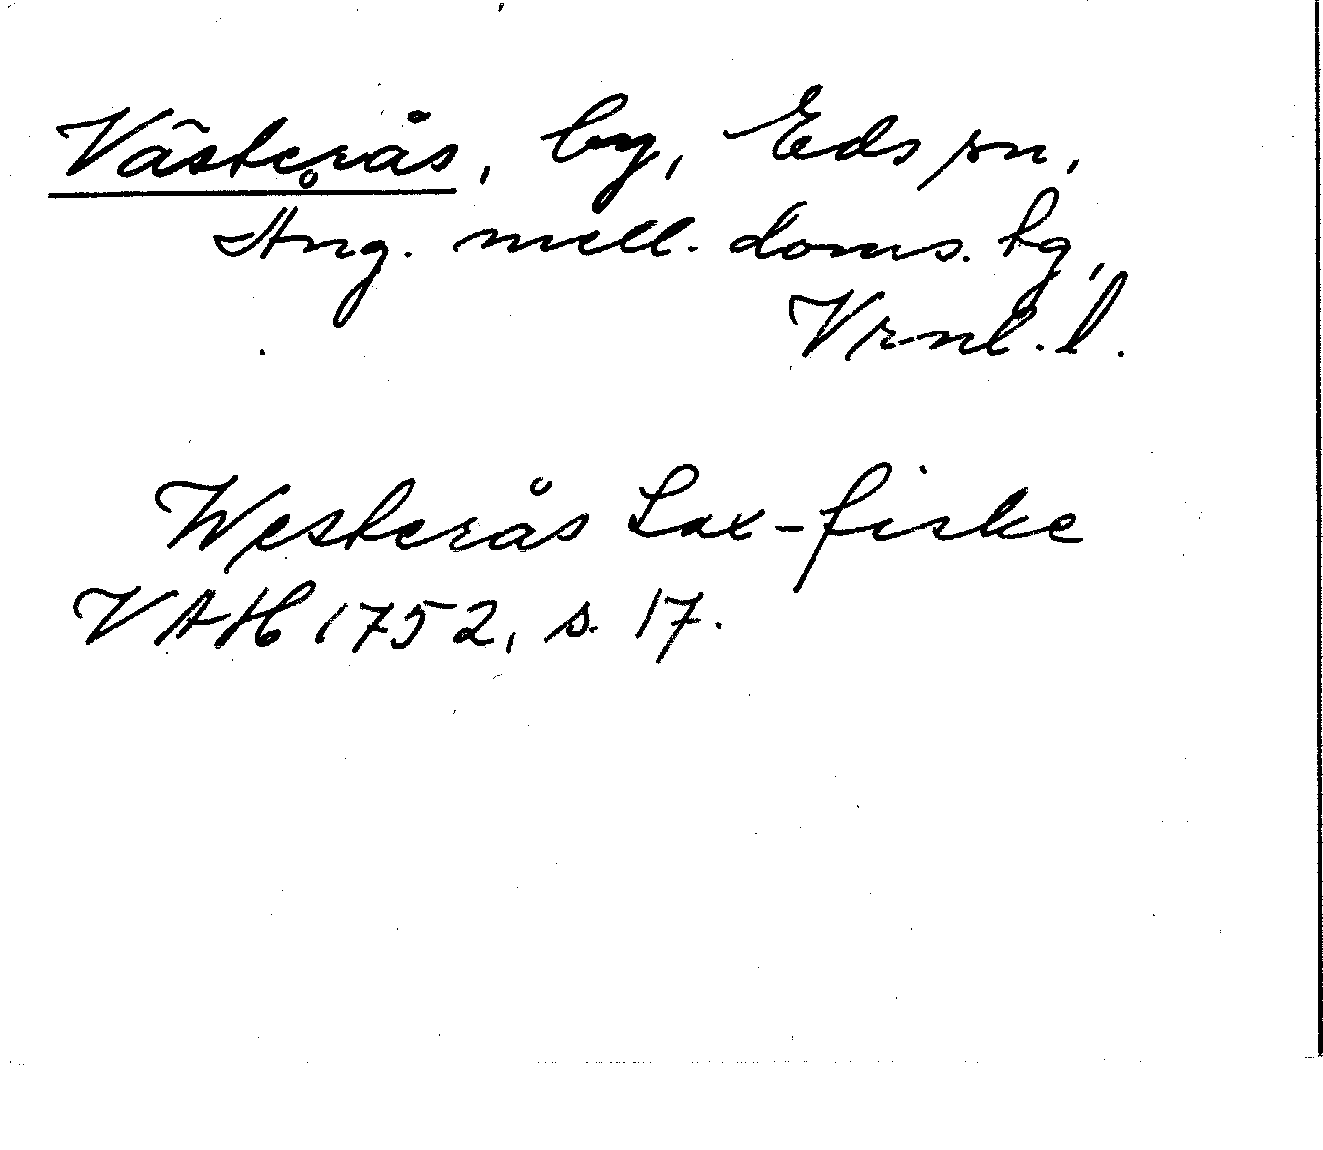 Västerås, by, Eds sn,
Ång. mell. doms. tg,
Vrnl. l.
Westerås Lax-fiske
VAH 1752, s. 17.